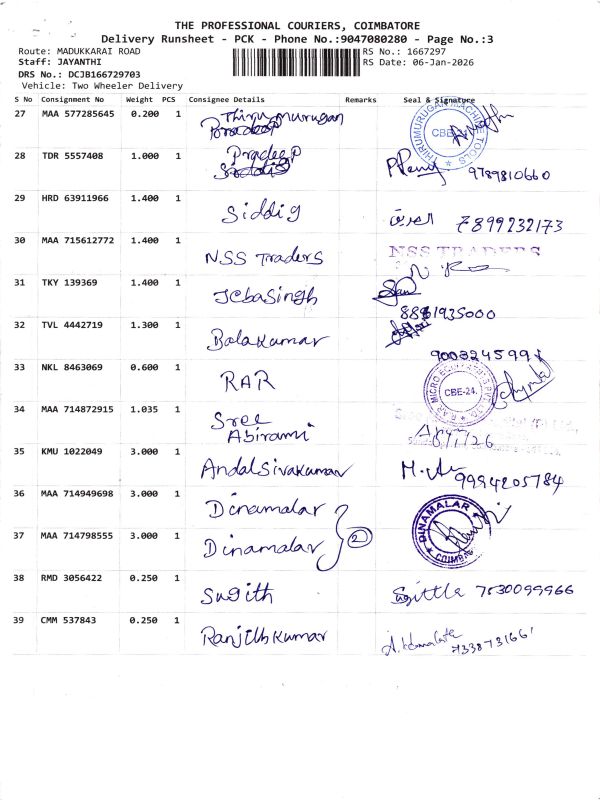 THE PROFESSIONAL COURIERS, COIMBATORE
Delivery Runsheet - PCK - Phone No.:9047080280 - Page No.:3
Route: MADUKKARAI ROAD RS No.: 1667297
Staff: JAYANTHI RS Date: 06-Jan-2026
DRS No.: DCJB166729703
Vehicle: Two Wheeler Delivery
S No Consignment No Weight PCS Consignee Details Remarks Seal & Signature
27 MAA 577285645 0.200 1 Thirumurugan THIRUMURUGAN MACHINE TOOLS CBE-24
28 TDR 5557408 1.000 1 Pradeep 9789810660
29 HRD 63911966 1.400 1 Siddig 7899232173
30 MAA 715612772 1.400 1 NSS Traders NSS TRADERS
31 TKY 139369 1.400 1 JebaSingh
32 TVL 4442719 1.300 1 Balakumar
33 NKL 8463069 0.600 1 RAR CBE-24.
34 MAA 714872915 1.035 1 Sree
Abirami
35 KMU 1022049 3.000 1 AndalSivakumar 9994205784
36 MAA 714949698 3.000 1 Dinamalar DINAMALAR
37 MAA 714798555 3.000 1 Dinamalar 2
38 RMD 3056422 0.250 1 Sugith 7530099966
39 CMM 537843 0.250 1 RanjithKumar